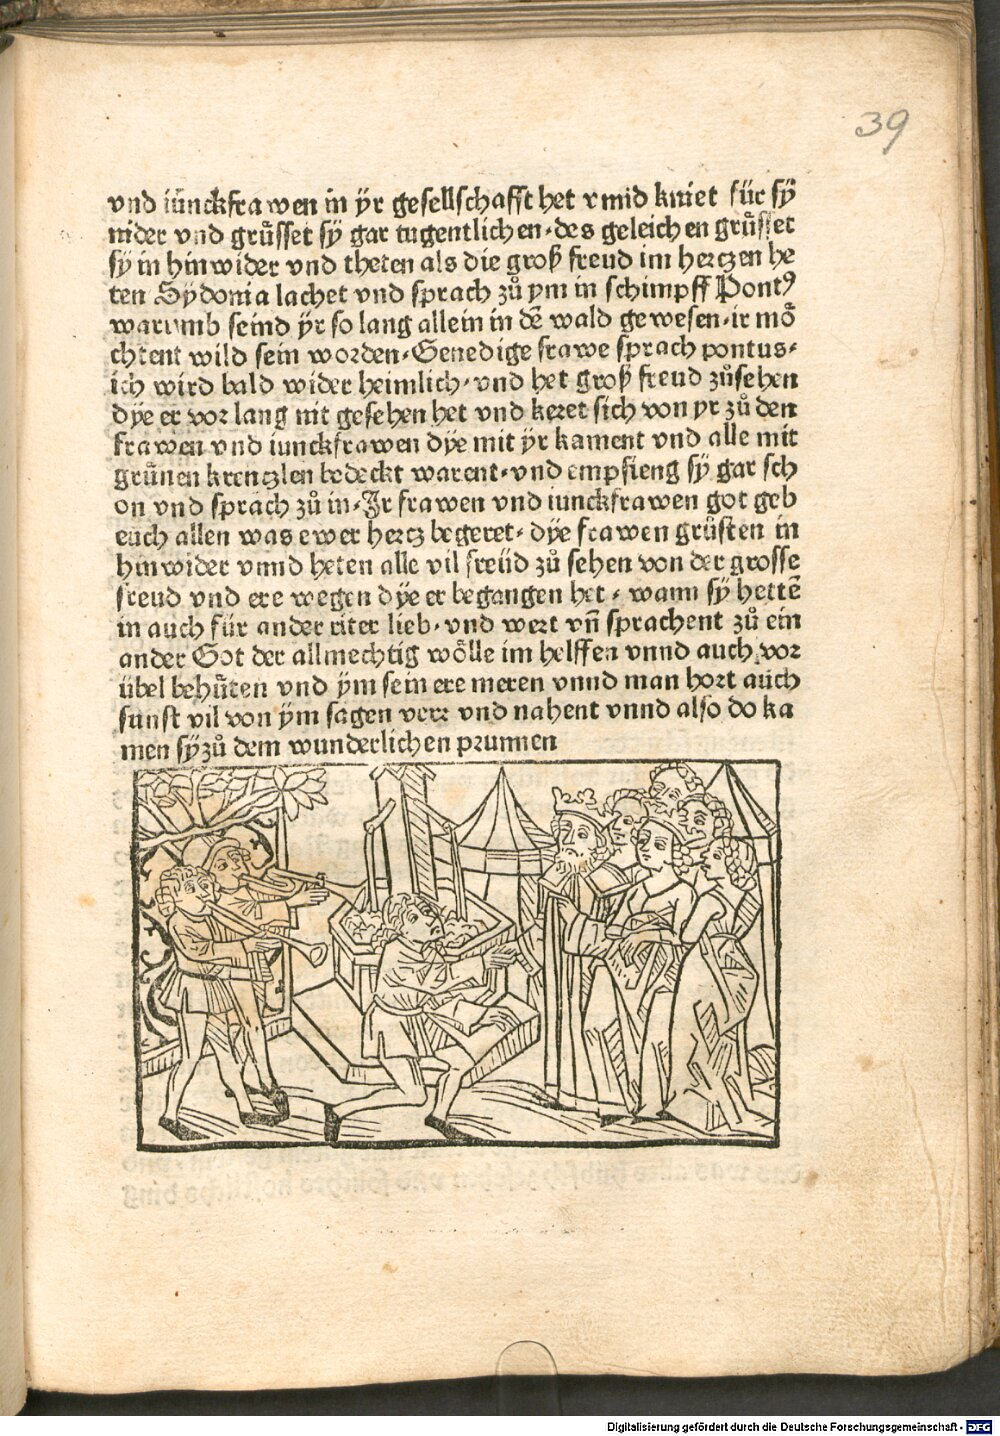 39
vnd iũnckfra wen in ÿr gesellschafft het vmid kniet für sÿ
nider vnd grůsset sÿ gar tugentlichen·des geleichen grůsset
sÿ in hinwider vnd theten als die groß freud im hertzen he
ten Sÿdonia lachet vnd sprach zů ym in schimpff Pontꝰ
warumb seind ÿr so lang allein in dē wald gewesen·ir mȫ
chtent wild sein worden·Genedige frawe sprach pontus·
ich wird bald wider heimlich·vnd het groß freud zůsehen
dÿe er vor lang nit gesehen het vnd keret sich von yr zů den
frawen vnd iunckfrawen dÿe mit ÿr kament vnd alle mit
grůnen krenczlen bedeckt warent·vnd empfieng sÿ gar sch
on vnd sprach zů in·Ir frawen vnd iunckfrawen got geb
euch allen was ewer hertz begeret·dÿe frawen grůsten in
hinwider vnnd heten alle vil freüd zů sehen von der grosse
freud vnd ere wegen dÿe er begangen het·wann sÿ hettē
in auch für ander riter lieb·vnd wert vn̄ sprachent zů ein
ander Got der allmechtig wȫlle im helffen vnnd auch vor
übel behůten vnd ÿm sein ere meren vnnd man hort auch
sunst vil von ÿm sagen verr vnd nahent vnnd also do ka
men sÿ zů dem wunderlichen prunnen
Digitalisierung gefördert durch die Deutsche Forschungsgemeinschaft - DFG